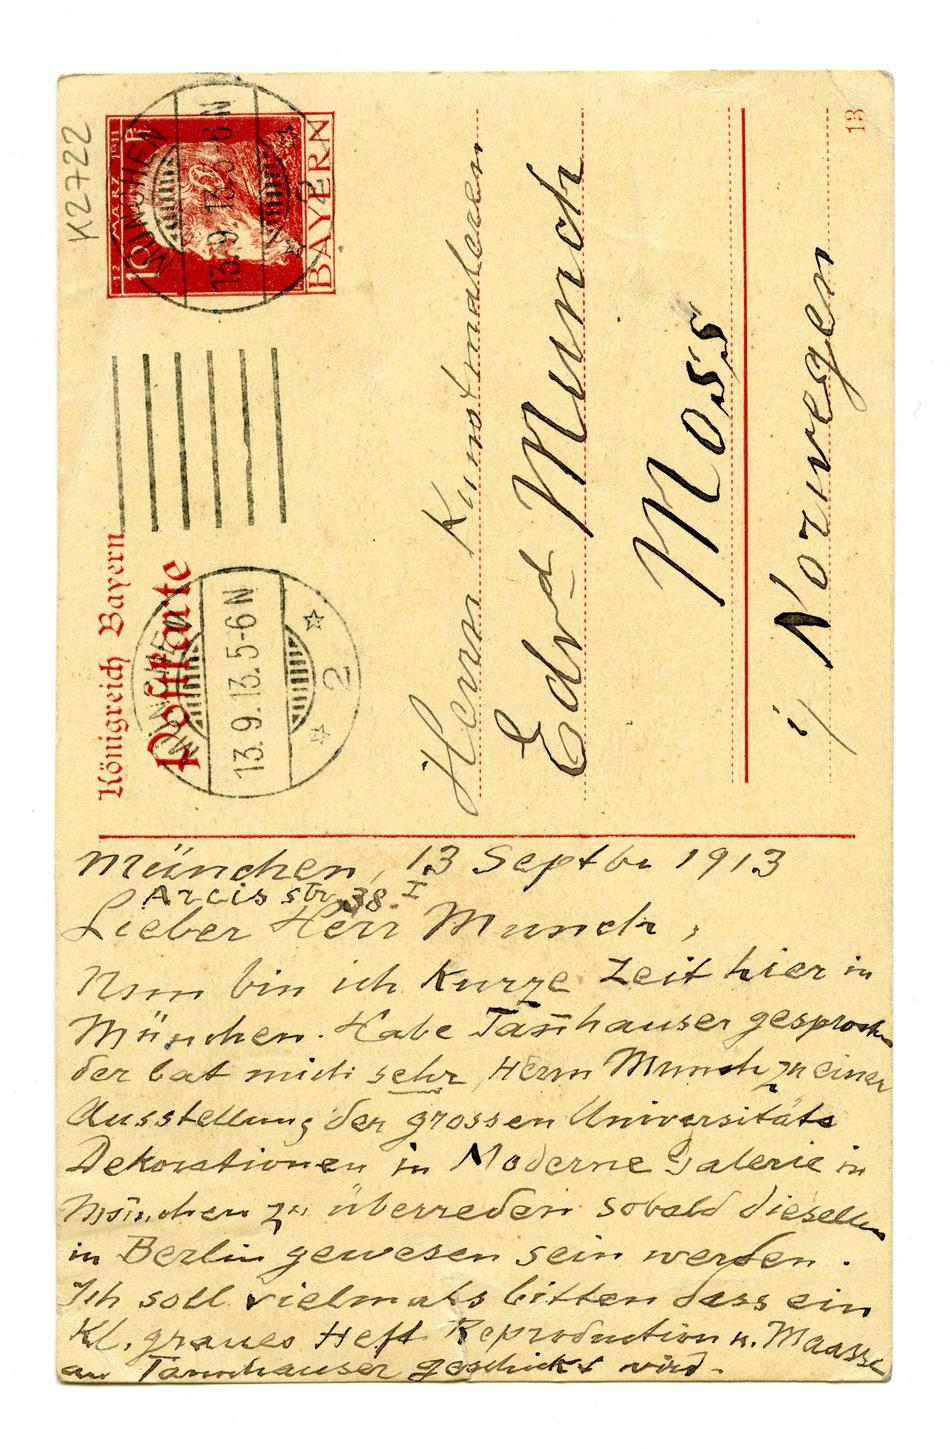 K2722
12 MÄRZ 1911
10 Pf
BAYERN
MÜNCHEN
13.9.13.5-6N
2
Königreich Bayern
Postkarte
MÜNCHEN
13.9.13.5-6N
2
13
Herrn Kunstmaleren
Edvd Munch
Moss
i/ Norwegen
München, 13 Septbr 1913
Arcisstr. 38. I
Lieber Herr Munch,
Nun bin ich kurze Zeit hier in
München. Habe Tannhauser gesproch
der bat mich sehr, Herrn Munch zu einer
Ausstellung der grossen Universitäts
Dekorationen in Moderne Galerie in
München zu überreden sobald dieselben
in Berlin gewesen sein werden.
Ich soll vielmals bitten dass ein
Kl. graues Heft Reproduction u. Maasse
an Tannhauser geschickt wird.